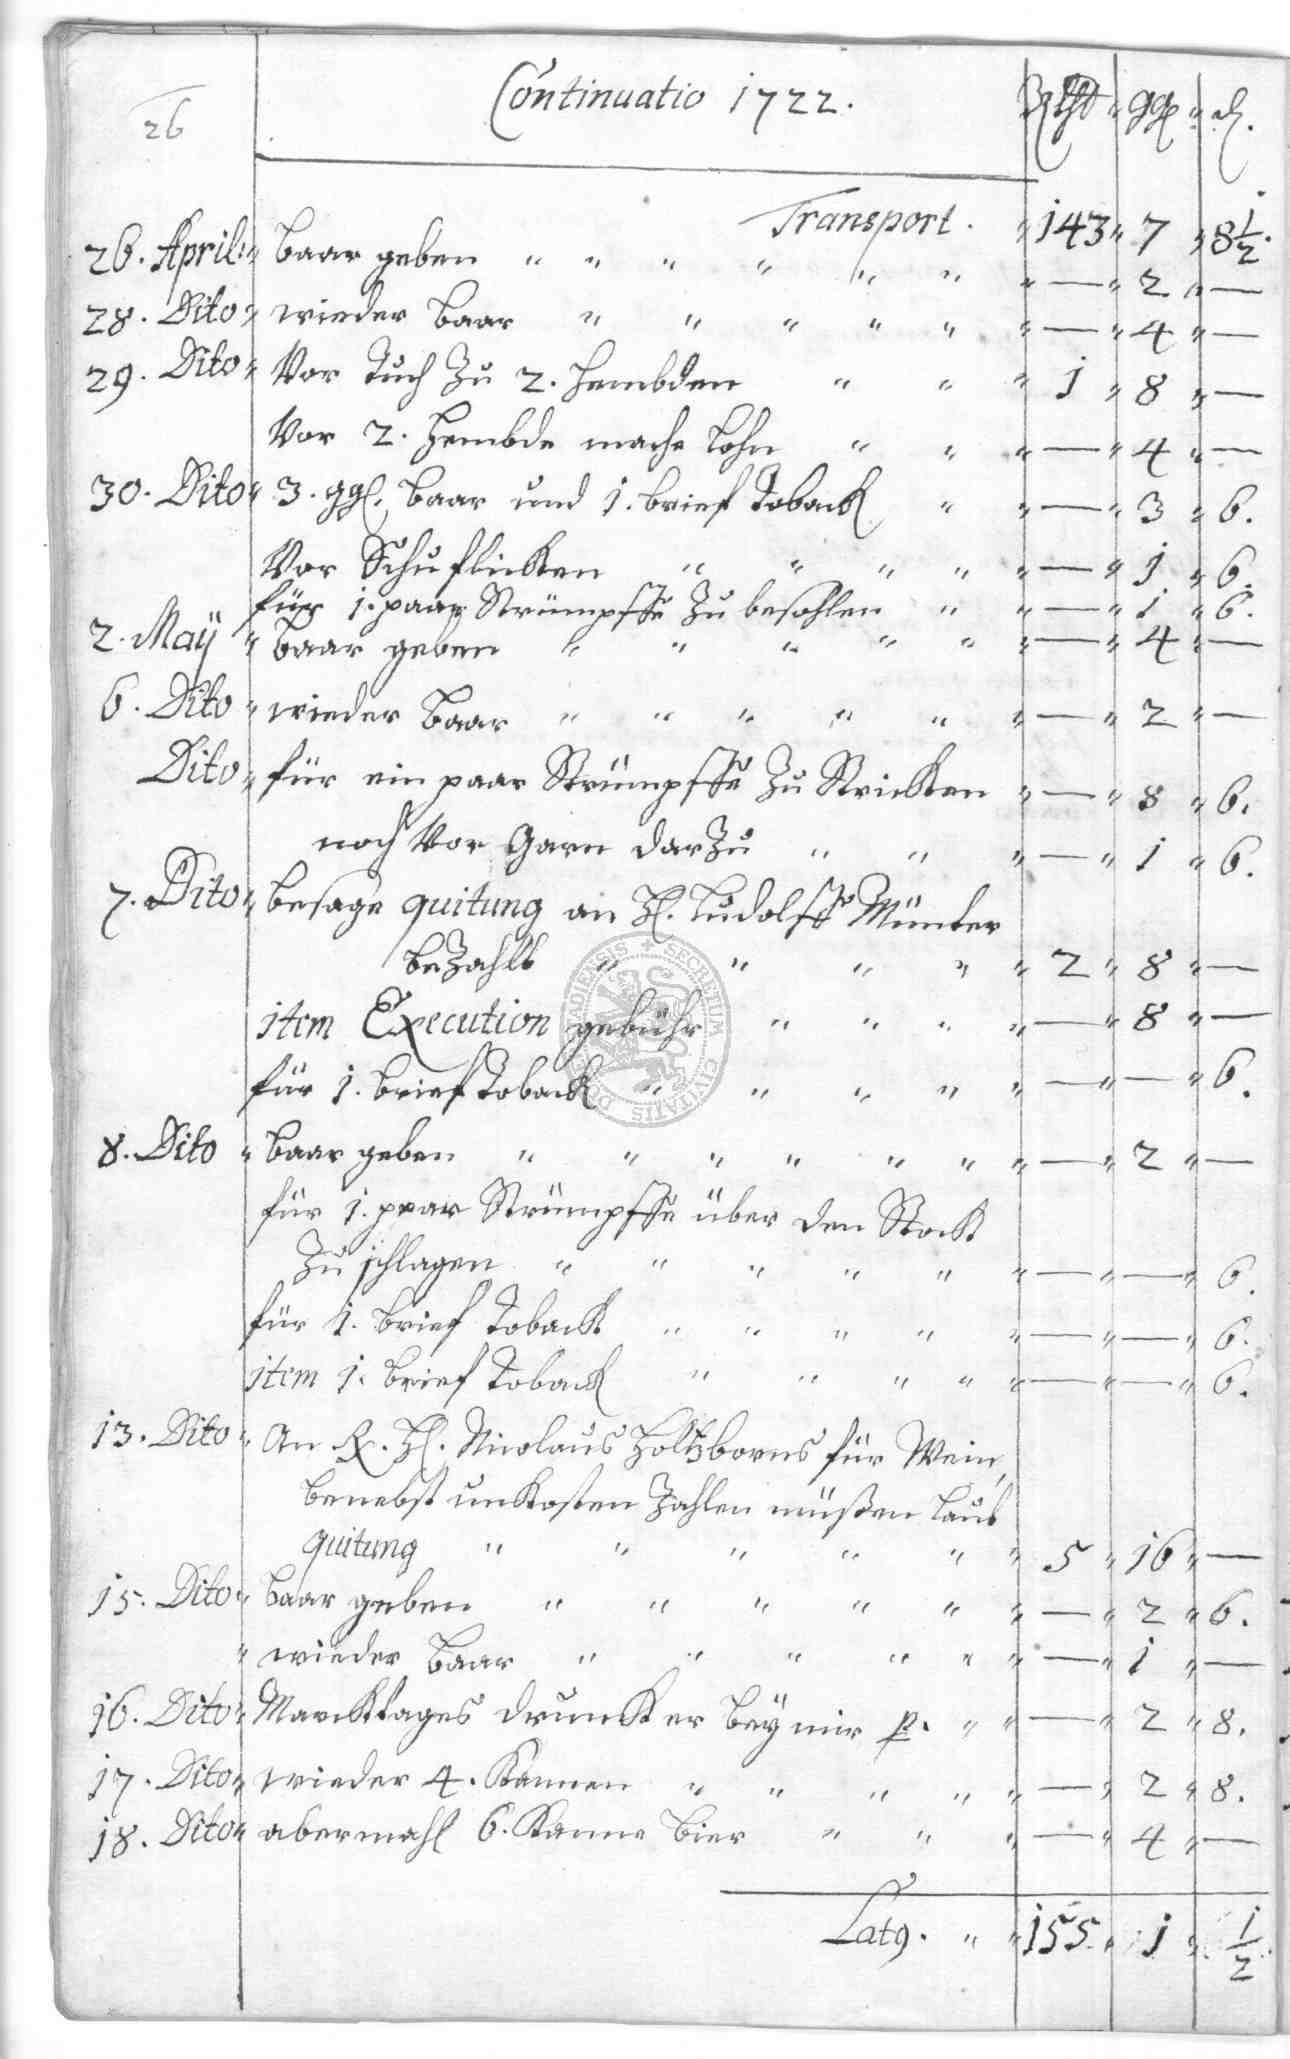 26
Continuatio 1722. Rthl " ggl " d.
Transport. " 143 " 7 " 8 1/2.
26. April: " baar geben " " " " " " " — " 2 " —
28. Dito " wieder baar " " " " " " — " 4 " —
29. Dito " Vor Tuch Zu 2. Hembden " " " 1 " 8 " —
Vor 2. Hembde mache Lohn " " " — " 4 " —
30. Dito " 3. ggl. baar und 1. brief Toback " " — " 3 " 6.
Vor Schu flicken " " " " " — " 1 " 6.
für 1. paar Strümpffe Zu besohlen " " — " 1 " 6.
2. Maÿ " baar geben " " " " " " — " 4 " —
6. Dito " wieder baar " " " " " " — " 2 " —
Dito " für ein paar Strümpffe Zu Stricken " — " 8 " 6.
noch Vor Garn darZu " " " — " 1 " 6.
7. Dito " besage quitung an H. Ludolff Münter
beZahlt " " " " " 2 " 8 " —
item Execution gebühr " " " " — " 8 " —
für 1. brief Toback " " " " " — " — " 6.
8. Dito " baar geben " " " " " " " — " 2 " —
für 1. paar Strümpffe über den Stock
Zu schlagen " " " " " " — " — " 6.
für 1. brief Toback " " " " " — " — " 6.
item 1. brief Toback " " " " " — " — " 6.
13. Dito " An R. H. Nicolaus Holtzborns für Wein,
benebst unkosten Zahlen müßen laut
quitung " " " " " " 5 " 16 " —
15. Dito " baar geben " " " " " " — " 2 " 6.
" wieder baar " " " " " " — " 1 " —
16. Dito " Marcktages drunck er beÿ mir p. " " — " 2 " 8.
17. Dito " wieder 4. Kannen " " " " " — " 2 " 8.
18. Dito " abermahl 6. Kanne bier " " " — " 4 " —
Lat9. " " 155. " 1 " 1/2.
SECRETUM CIVITATIS